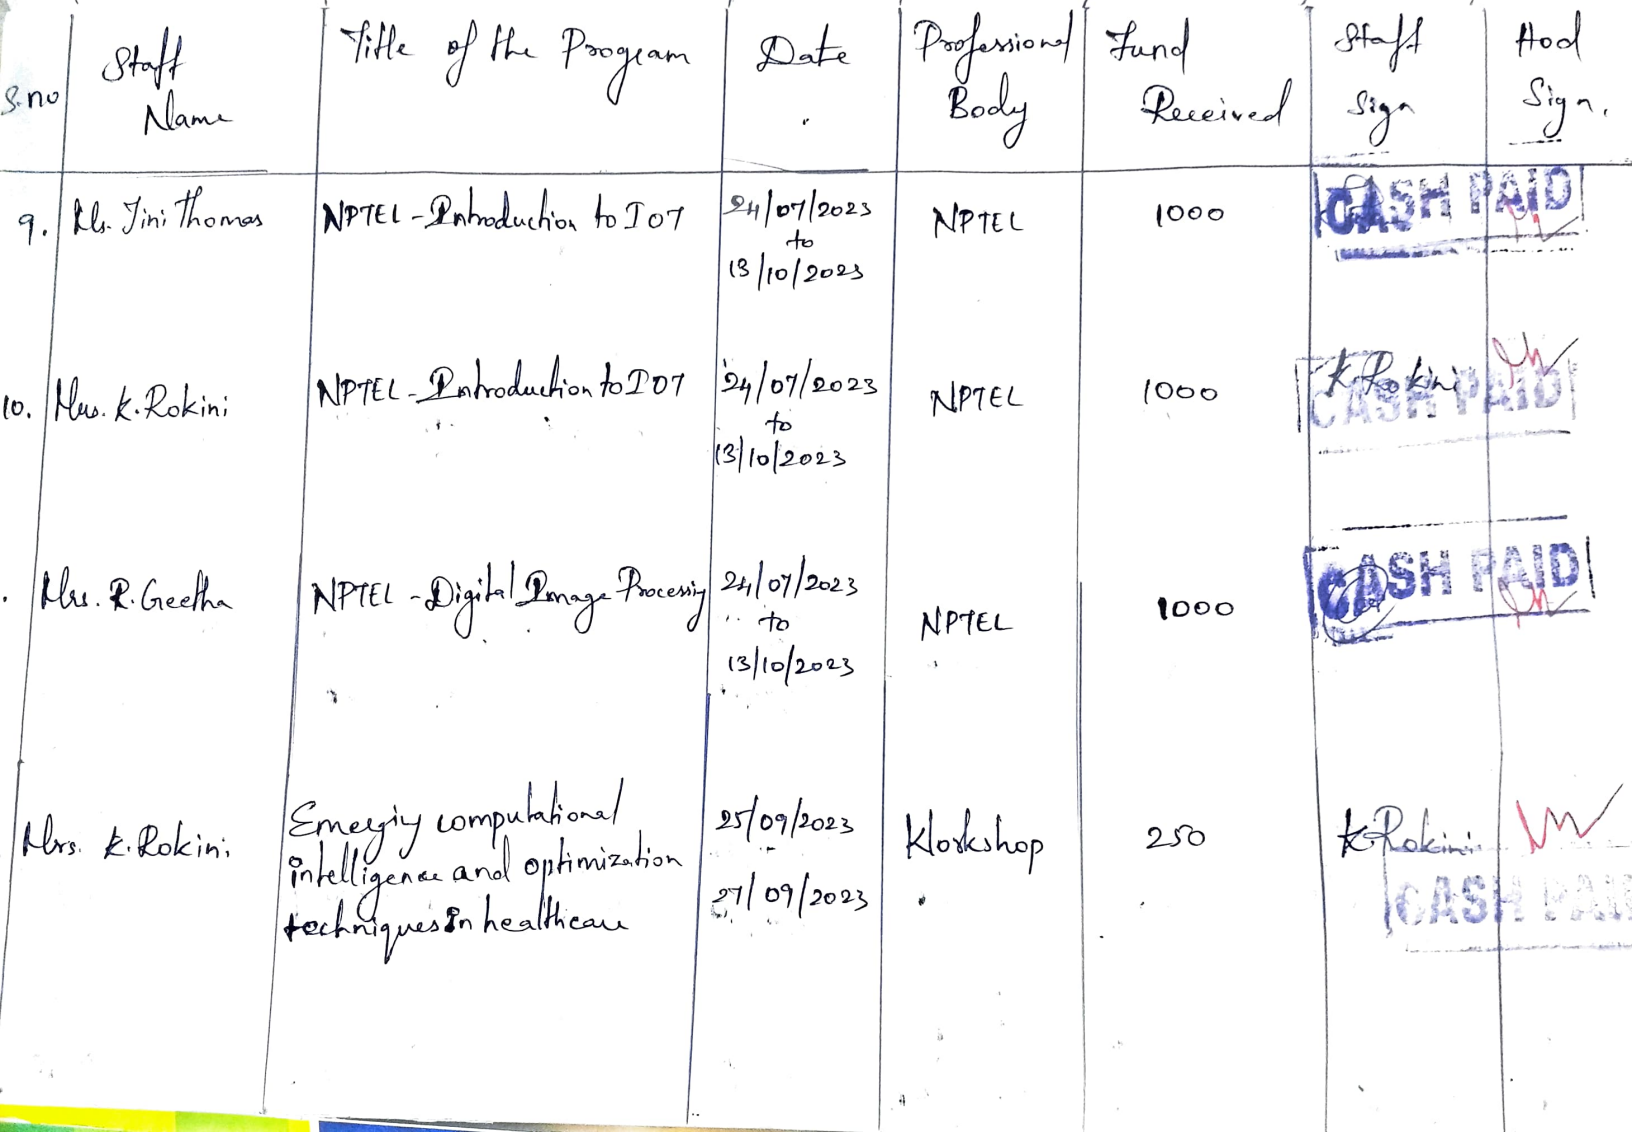 S.no Staff Name Title of the Program Date Professional Body Fund Received Staff Sign Hod Sign.
9. Ms. Jini Thomas NPTEL - Introduction to IOT 24/07/2023 to 13/10/2023 NPTEL 1000 CASH PAID
10. Mrs. K. Rokini NPTEL - Introduction to IOT 24/07/2023 to 13/10/2023 NPTEL 1000 K. Rokini CASH PAID
. Mrs. R. Geetha NPTEL - Digital Image Processing 24/07/2023 to 13/10/2023 NPTEL 1000 CASH PAID
Mrs. K. Rokini. Emergiy computational intelligence and optimization techniques In healthcare 25/09/2023 - 27/09/2023 Workshop 250 K. Rokini CASH PAID